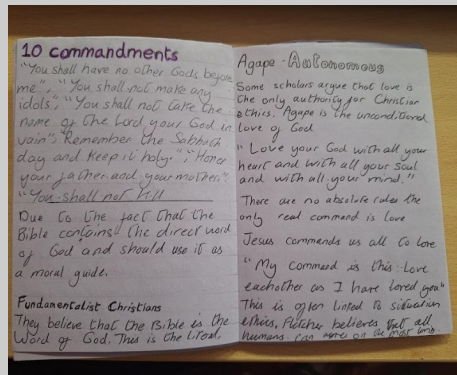 10 commandments
"You shall have no other Gods before
me", "You shall not make any
idols", "You shall not take the
name of the Lord your God in
vain", Remember the Sabbath
day and keep it holy", "Honor
your father and your mother",
"You shall not kill
Due to the fact that the
Bible contains the direct word
of God and should use it as
a moral guide.
Fundamentalist Christians
They believe that the Bible is the
Word of God. This is the literal,
Agape - Autonomous
Some scholars argue that love is
the only authority for Christian
ethics. Agape is the unconditional
love of God
"Love your God with all your
heart and with all your Soul
and with all your mind."
There are no absolute rules the
only real command is love
Jesus commands us all to love
"My command is this: Love
eachother as I have loved you"
This is often linked to situation
ethics, Fletcher believes that all
humans can on the most